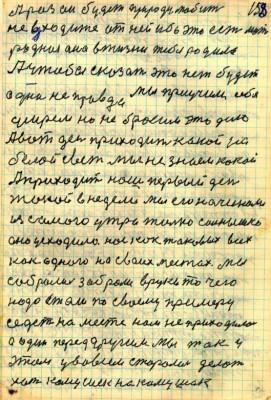 158
А раз он будет природу любит
не уходите от ней ибо это есть мать
родная она в жизни тебя родила
А чтобы сказать это нет будет
одна не правда мы приучим себя
умрем но не бросим это дело
А вот ден приходит какой на
белой свет мы не знаем какой
А приходит наш первый ден
такой в неделе мы его начинаем
из самого утра только солнышко
оно уходило нас как таковых всех
как одного на своих местах мы
собрали забрали в руки то чего
надо стали по своему примеру
садет на месте нам не приходилос
один перед другим мы так у
этом условии старалис делат
хат кому шек на кому шак